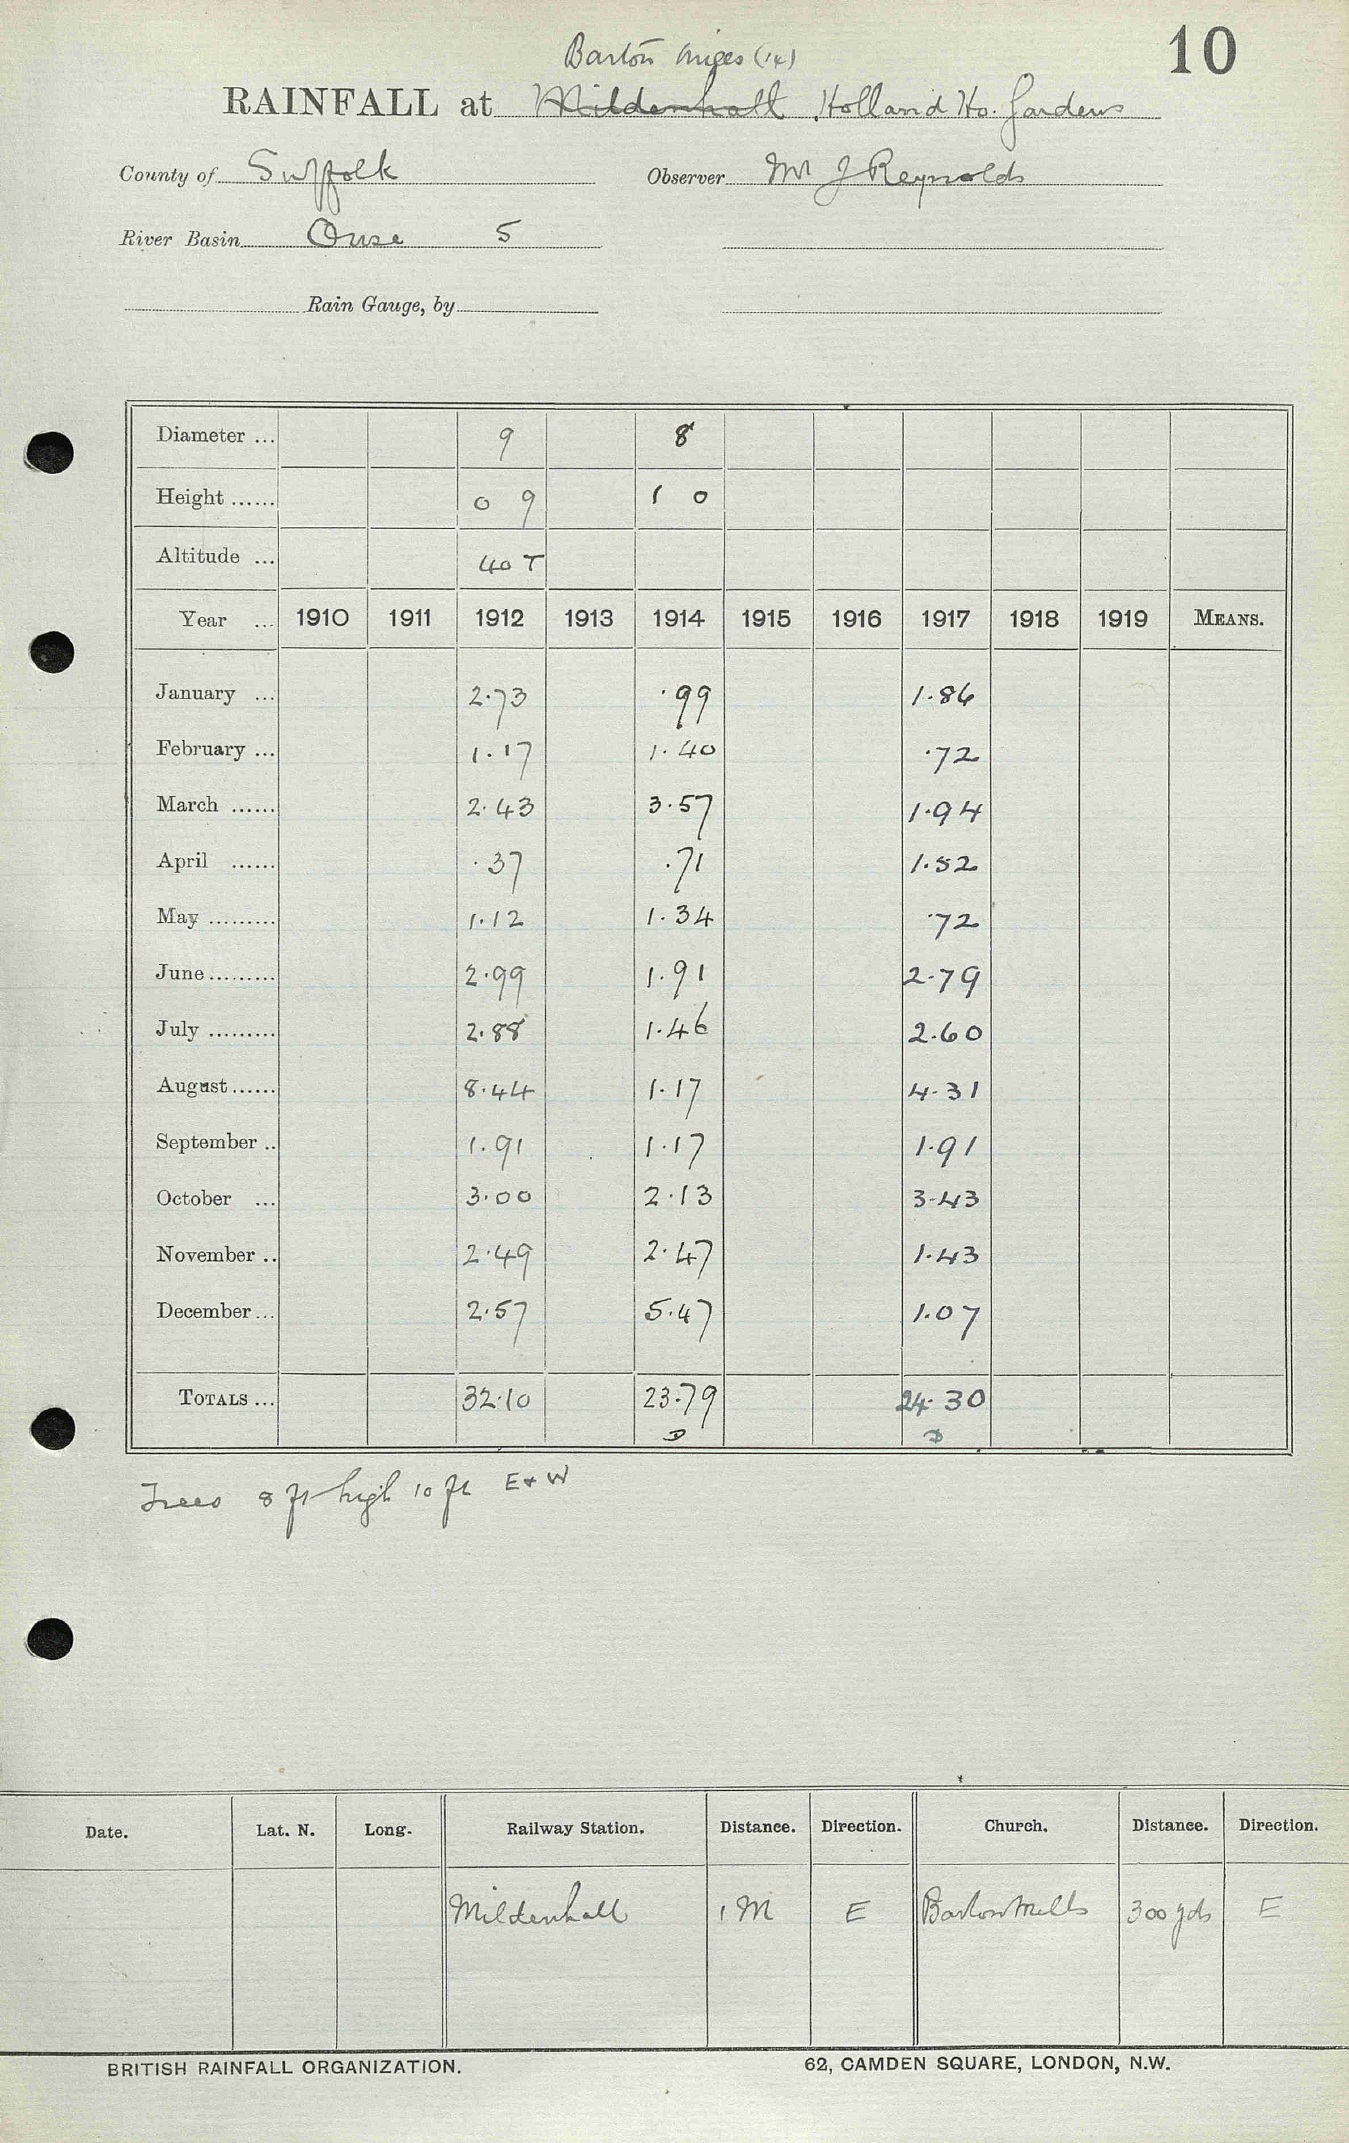 10
Barton
RAINFALL at Mildenhall Holland Ho. Gardens
County of Suffolk Observer Mr J Reynolds
River Basin Ouse 5
Rain Gauge, by
Diameter ... 9 8
Height ...... 0 9 1 0
Altitude ... 40 T
Year ... 1910 1911 1912 1913 1914 1915 1916 1917 1918 1919 MEANS.
January ... 2.73 .99 1.86
February ... 1.17 1.40 .72
March ...... 2.43 3.57 1.94
April ...... .37 .71 1.52
May ......... 1.12 1.34 .72
June ......... 2.99 1.91 2.79
July ......... 2.88 1.46 2.60
August ...... 8.44 1.17 4.31
September .. 1.91 1.17 1.91
October ... 3.00 2.13 3.43
November .. 2.49 2.47 1.43
December ... 2.57 5.47 1.07
TOTALS ... 32.10 23.79 24.30
D D
Trees 8 ft high 10 ft E & W
Date. Lat. N. Long. Railway Station. Distance. Direction. Church. Distance. Direction.
Mildenhall 1 M E Barton Mills 300 yds E
BRITISH RAINFALL ORGANIZATION. 62, CAMDEN SQUARE, LONDON, N.W.